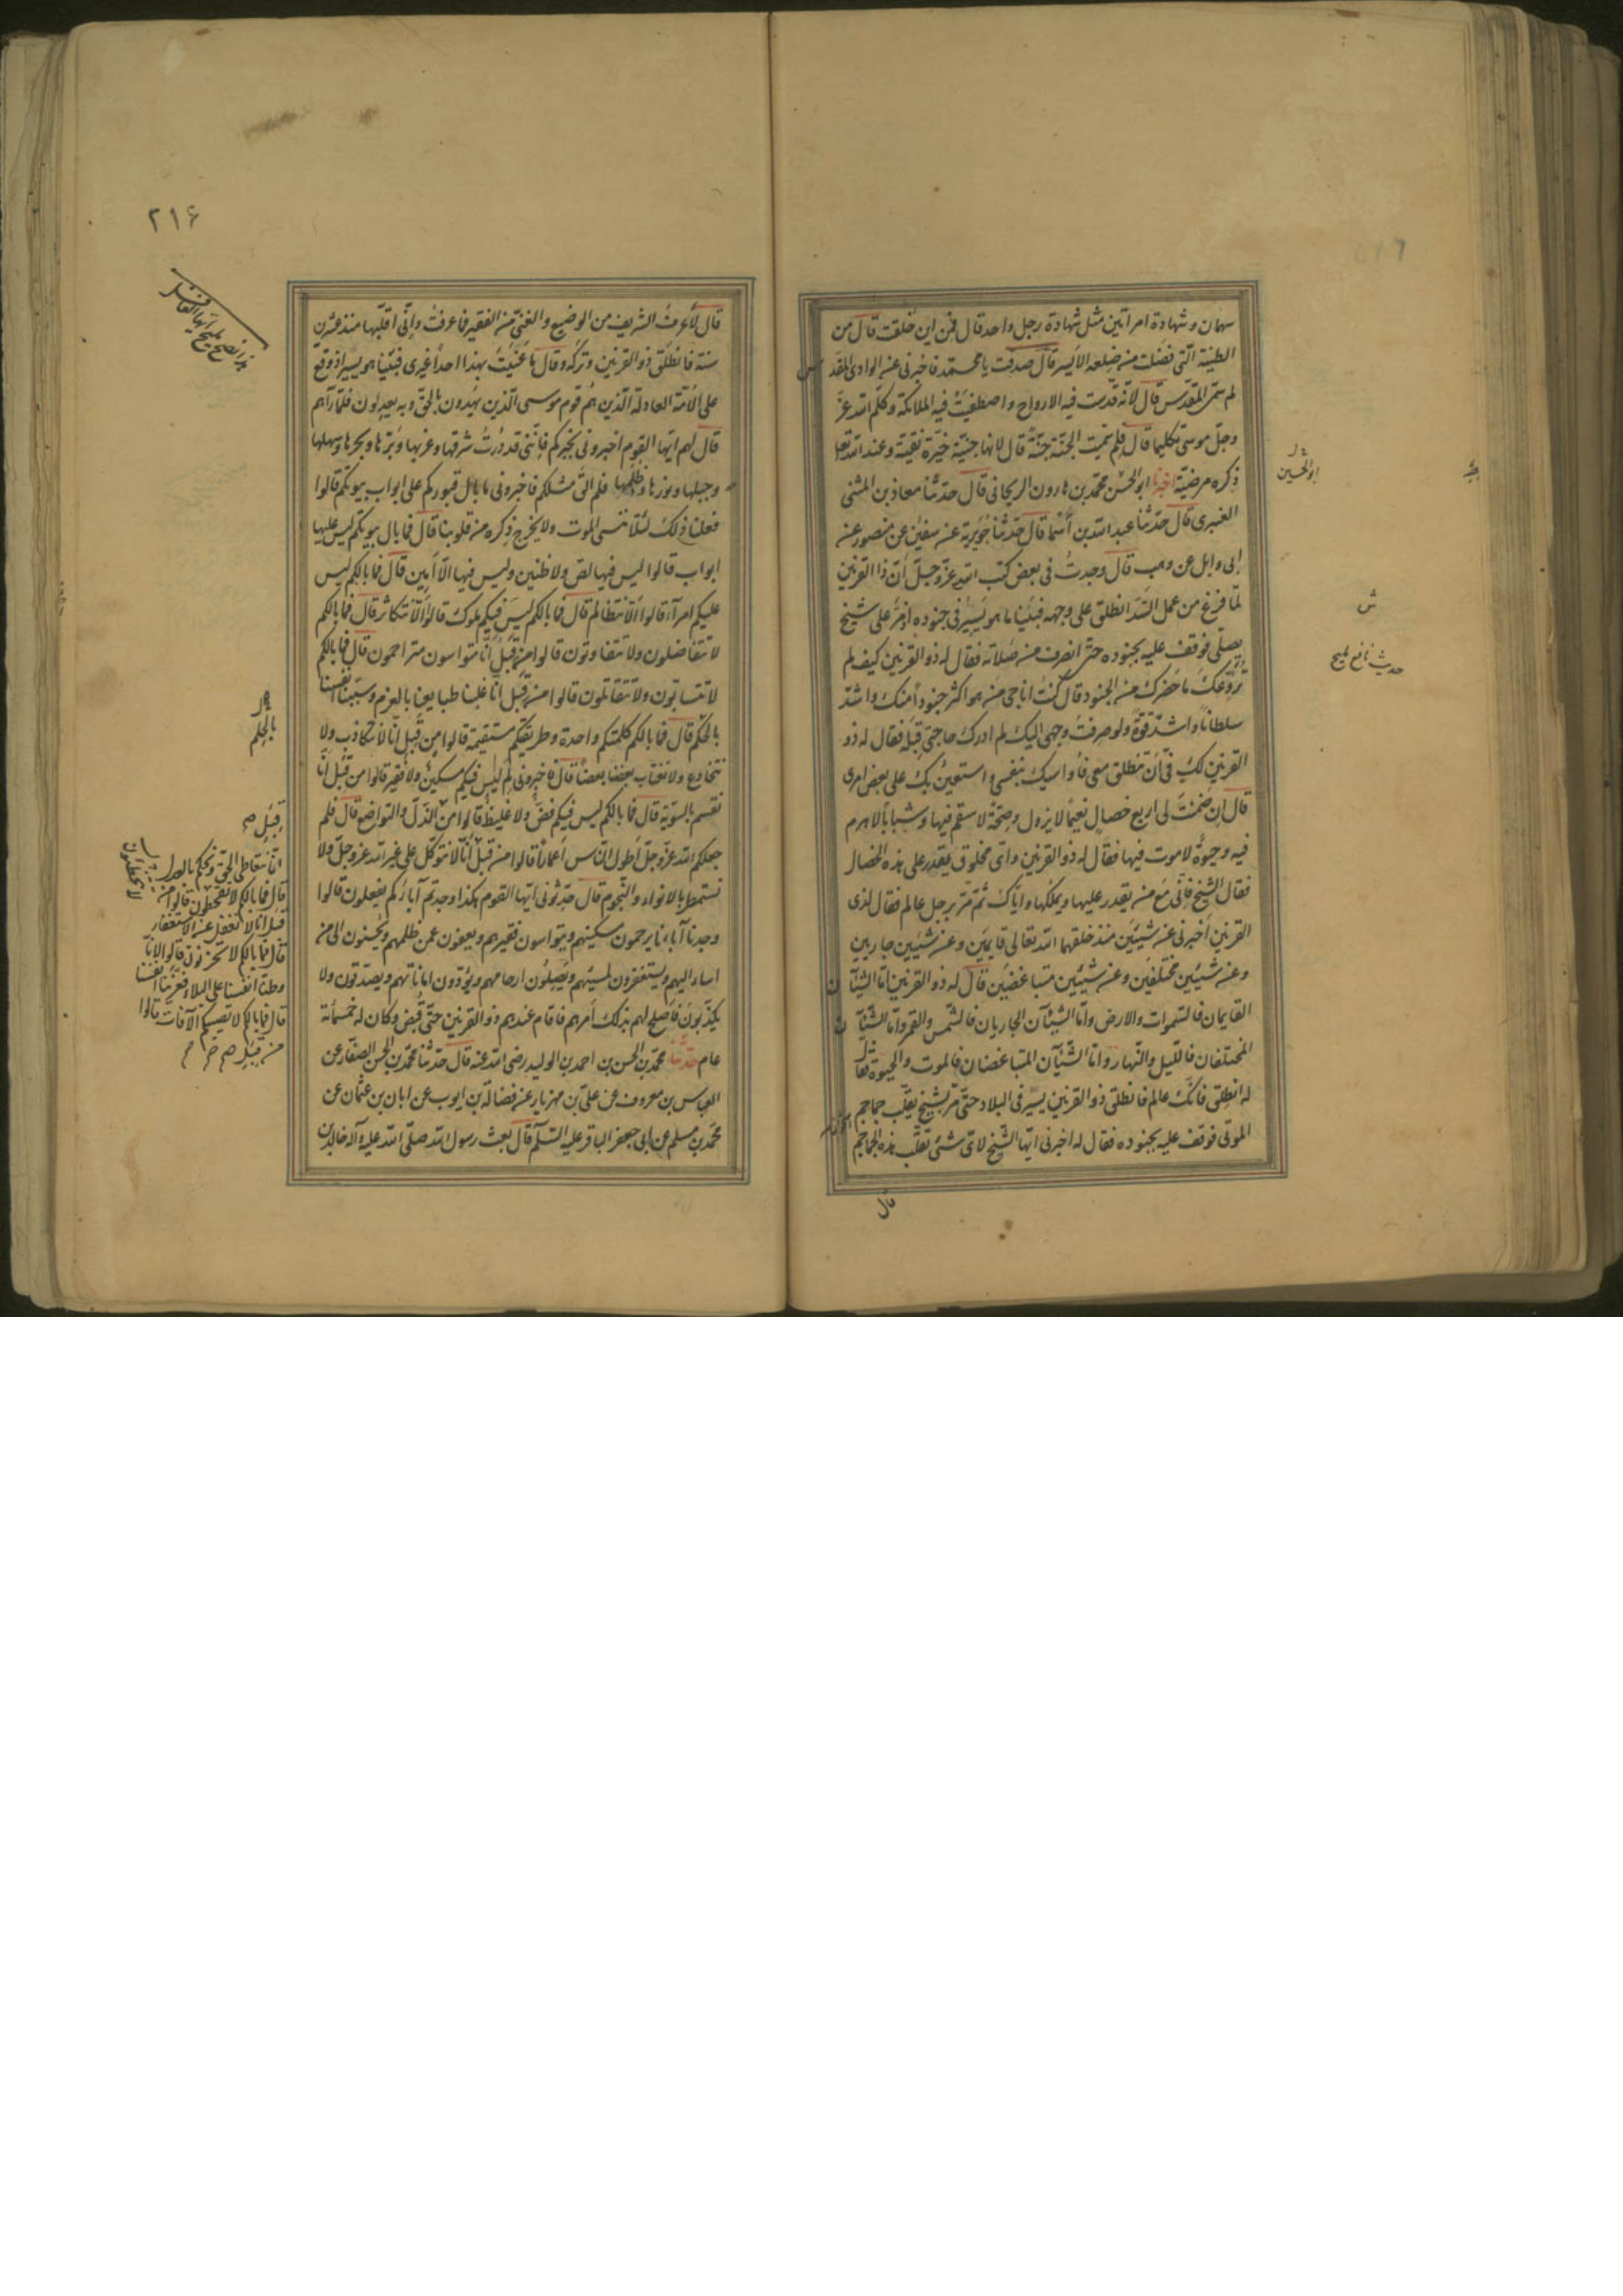 سهمان و شهادة امراتين مثل شهادة رجل واحد قال فمن اين خلقت قال من
الطينة التى فضلت من ضلعه الايسر قال صدقت يا محمد فاخبرنى عن الوادى المقدس
لم سمّى المقدّس قال لأنّه قدّست فيه الارواح واصطفيت فيه الملائكة وكلّم الله عزّ
وجلّ موسى تكليما قال فلم سميت الجنّة جنّة قال لانها جنينة خيّرة نقيّة وعند الله تعا
ذكره مرضيّة اخبرنا ابو الحسن محمد بن هارون الريحانى قال حدّثنا معاذ بن المثنى
العنبرى قال حدّثنا عبد الله بن أسما قال حدّثنا جُويرية عن سفين عن منصور عن
ابى وايل عن وهب قال وجدتُ فى بعض كتب الله عزّ وجلّ أنّ ذا القرنين
لمّا فرغ من عمل السّدّ انطلق على وجهه فبينا ما هو يسير فى جنوده اذ مرّ على شيخ
يصلّى فوقف عليه بجنوده حتى انصرف من صلاته فقال له ذو القرنين كيف لم
تروّعك ما حضرك من الجنود قال كنتُ اناجى من هو اكثر جنوداً منك واشدّ
سلطاناً واشدّ قوّة ولو صرفتُ وجهى اليك لم ادرك حاجتى قبله فقال له ذو
القرنين لك فى أن تنطلق معى فأواسيك بنفسى واستعين بك على بعض امرى
قال إن ضمنتَ لى اربع خصال نعيمًا لا يزول وصحّة لا سقم فيها وشبابًا لا هرم
فيه وحيوة لا موت فيها فقال له ذو القرنين واى مخلوق يقدر على هذه الخصال
فقال الشيخ فانّى مع من يقدر عليها ويملكها وايّاك ثمّ مرّ برجل عالم فقال لذى
القرنين اخبرنى عن شيئين منذ خلقهما الله تعالى قايمين وعن شيئين جاريين
وعن شيئين مختلفين وعن شيئين متباغضين قال له ذو القرنين امّا الشيئآن
القايمان فالسّموات والارض وامّا الشيئآن الجاريان فالشمس والقمر وامّا الشيئآن
المختلفان فالليل والنّهار وامّا الشيئآن المتباغضان فالموت والحيوة فقال
له انطلق فانّك عالم فانطلق ذو القرنين يسير فى البلاد حتى مرّ بشيخ يقلّب جماجم
الموتى فوقف عليه بجنوده فقال له اخبرنى ايّها الشيخ لاىّ شئ تقلّب هذه الجماجم
قال
ابو الحسين
ش
حديث نافع مليح
٢١۶
قال لأعرف الشريف من الوضيع والغنىّ من الفقير فما عرفت وإنّى اقلّبها منذ عشرين
سنة فانطلق ذو القرنين وتركه وقال ما عنيتَ بهذا احداً غيرى فبينا هو يسير اذ وقع
على الأمّة العادلة الّذين هم قوم موسى الّذين يهدون بالحقّ وبه يعدلون فلمّا رآهم
قال لهم ايّها القوم اخبرونى بخبركم فإنّنى قد دُرتُ شرقها وغربها وبَرّها وبحرها وسهلها
وجبلها ونورها وظلمها فلم الق مثلكم فاخبرونى ما بال قبوركم على ابواب بيوتكم قالوا
فعلنا ذلك لئلا ننسى الموت ولا يخرج ذكره من قلوبنا قال فما بال بيوتكم ليس عليها
ابواب قالوا ليس فيها لص ولا ظنين وليس فيها الّا امين قال فما بالكم ليس
عليكم امرآء قالوا الّا نتظالم قال فما بالكم ليس فيكم ملوك قالوا لأنّا لا نتكاثر قال فما بالكم
لا تتفاضلون ولا تتفاوتون قالوا من قبل أنّا متواسون متراحمون قال فما بالكم
لا تتسابّون ولا تتقاتلون قالوا من قبل انّا غلبنا طبايعنا بالعزم وسيّسنا انفسنا
بالحكم قال فما بالكم كلمتكم واحدة وطريقتكم مستقيمة قالوا من قبل انّا لا نتكاذب ولا
نتخادع ولا نغتاب بعضنا بعضا قال فاخبرونى لم ليس فيكم مسكين ولا فقير قالوا من قبل انّا
نقسم بالسويّة قال فما بالكم ليس فيكم فضّ ولا غليظ قالوا من الذلّ والتواضع قال فلم
جعلكم الله عزّ وجلّ أطول النّاس أعماراً قالوا من قبل أنّا لا نتوكّل على غير الله عزّ وجلّ ولا
نستمطر بالانواء والنّجوم قال حدّثونى ايّها القوم هكذا وجدتم آباءكم يفعلون قالوا
وجدنا آباءنا يرحمون مسكينهم ويتواسون فقيرهم ويعفون عمن ظلمهم ويحسنون الى من
اساء اليهم ويستغفرون لمسيئهم ويصلون ارحامهم ويؤدون اماناتهم ويصدقون ولا
يكذبون فأصلح لهم بذلك أمرهم فاقام عندهم ذو القرنين حتّى قُبض وكان له خمسمائة
عام حدّثنا محمّد بن الحسن بن احمد بن الوليد رضى الله عنه قال حدّثنا محمّد بن الحسن الصفّار عن
العباس بن معروف عن علىّ بن مهزيار عن فضالة بن ايوب عن ابان بن عثمان عن
محمّد بن مسلم عن ابى جعفر الباقر عليه السّلم قال بعث رسول الله صلّى الله عليه وآله خالد بن
بالحلم
قبل صح
انّا نتعاطى الحقّ ونحكم بالعدل
قال فما بالكم لا تقحطون قالوا من
قبل انّا لا نغفل عن الاستغفار
قال فما بالكم لا تحزنون قالوا لانّا
وطنّا انفسنا على البلاء فعزّينا انفسنا
قال فما بالكم لا تصيبكم الآفات قالوا
من قبل صح